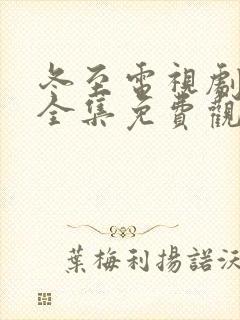 冬至電視劇
全集免費觀
葉梅利揚諾沃